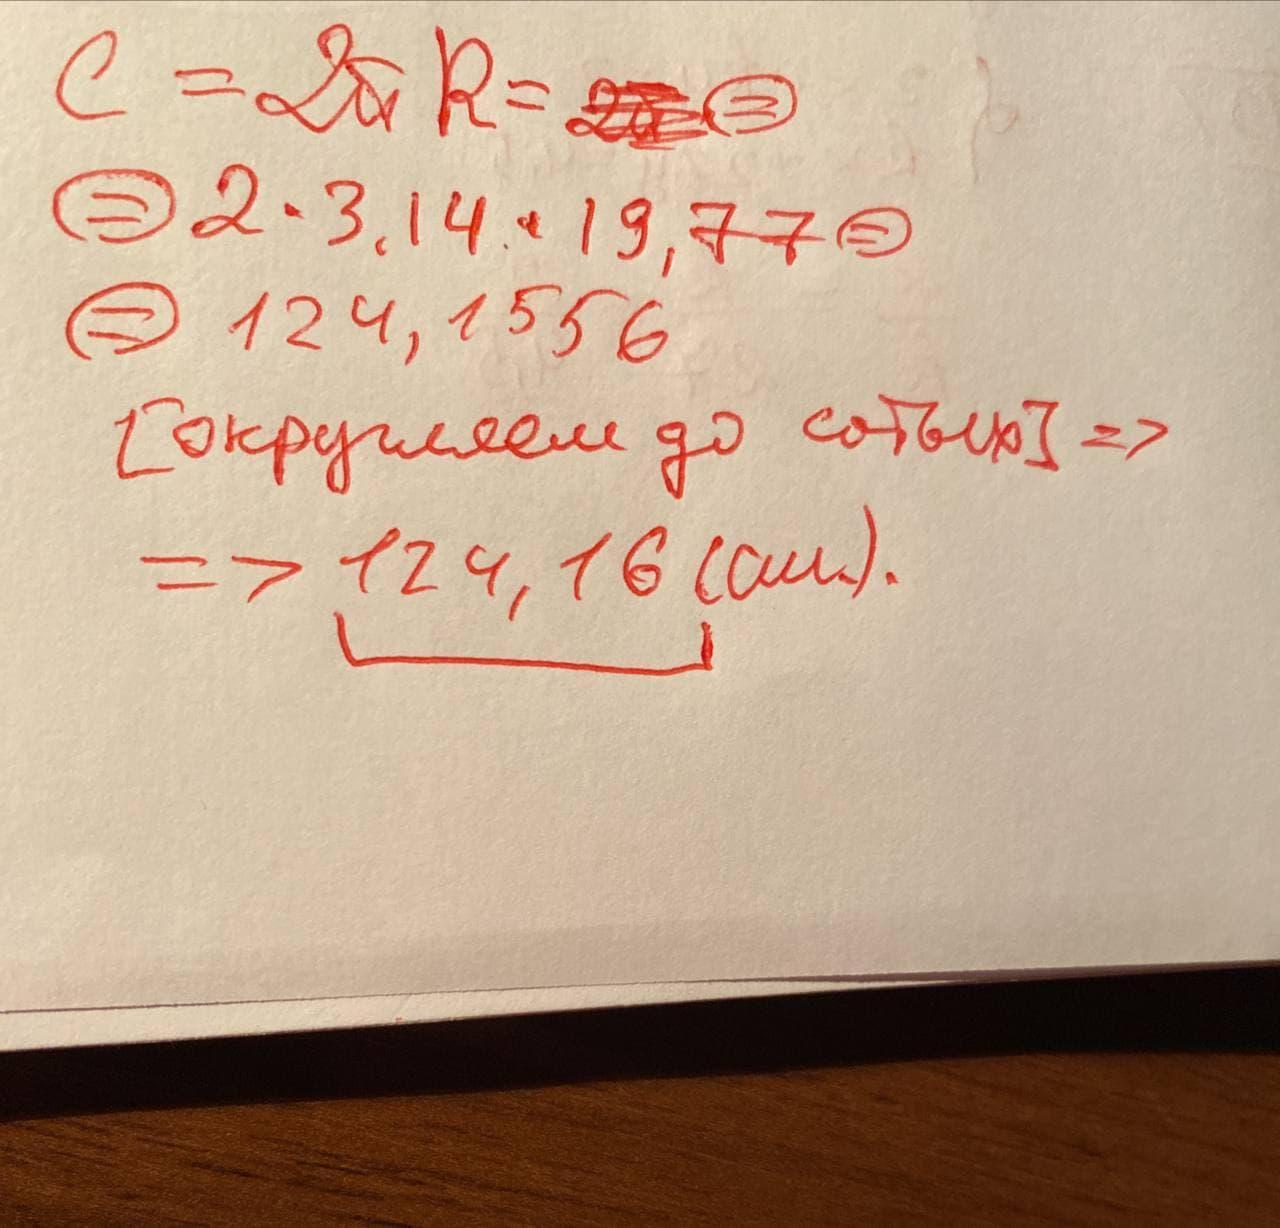 C = 2πR = =
= 2 · 3.14 · 19,77 =
= 124,1556
[округляем до сотых] =>
=> 124,16 (см.).